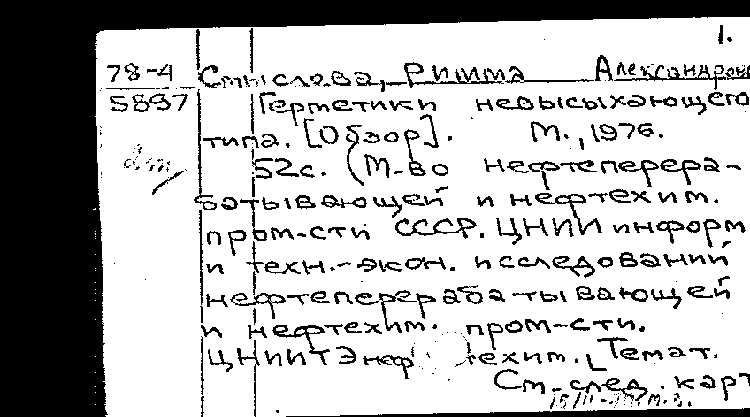 1.
78-4 Смыслова, Римма Александровн
5897 Герметики невысыхающего
типа. [Обзор]. М., 1976.
52с. (М-во нефтеперера-
батывающей и нефтехим.
пром-сти СССР. ЦНИИ информ
и техн.-экон. исследований
нефтеперерабатывающей
и нефтехим. пром-сти.
ЦНИИТЭнефтехим. Темат.
См. след. карт